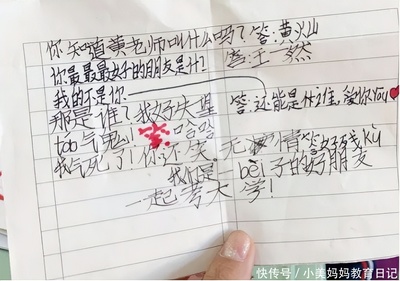 你知道黄老师叫什么吗？答：黄灿
你最最最好的朋友是什？答：王一然
我的不是你
那是谁？我好失望 答：还能是什谁，爱你You
tob气鬼！笑哈哈
我气死了！你还笑 无情 好残kù
我们是一bèi子的好朋友
一起考大学！
快传号 / 小美妈妈教育日记